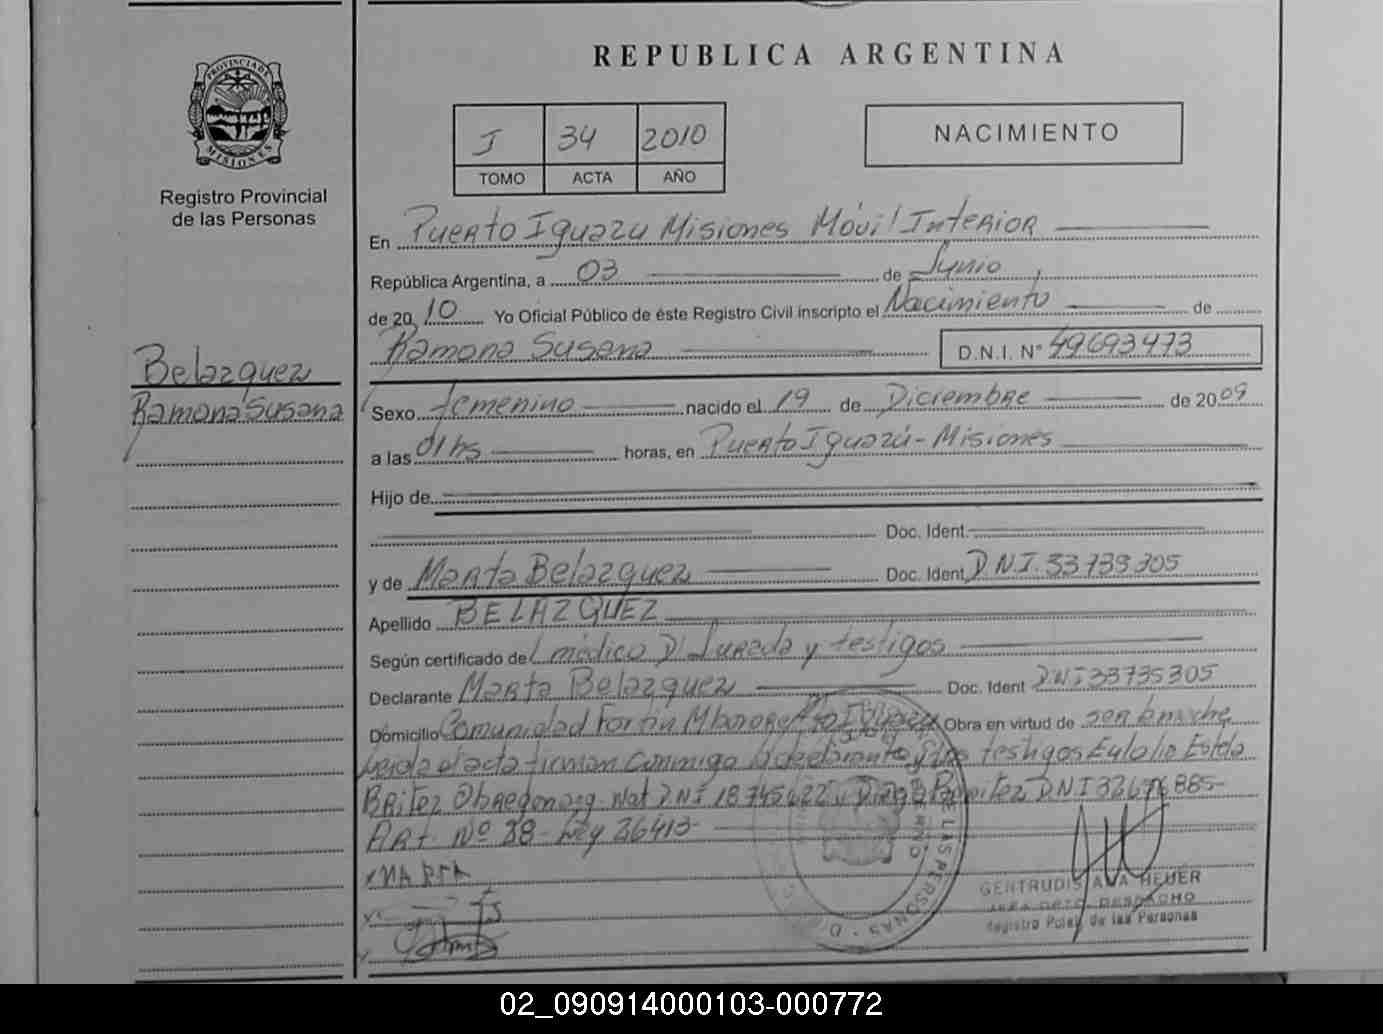 REPUBLICA ARGENTINA
PROVINCIA DE
MISIONES
Registro Provincial
de las Personas
J 34 2010
TOMO ACTA AÑO
NACIMIENTO
En Puerto Iguazu Misiones Móvil Interior
República Argentina, a 03 de Junio
de 20 10 Yo Oficial Público de éste Registro Civil inscripto el Nacimiento de
Ramona Susana D.N.I. N° 49693473
Belazquez
Ramona Susana
Sexo femenino nacido el 19 de Diciembre de 2009
a las 01 hs horas, en Puerto Iguazú - Misiones
Hijo de
Doc. Ident.
y de Marta Belazquez Doc. Ident D.N.I. 33735305
Apellido BELAZQUEZ
Según certificado del médico D' Jurada y testigos
Declarante Marta Belazquez Doc. Ident D.N.I 33735305
Domicilio Comunidad Fortin Mborore Pto Iguazu Obra en virtud de ser la madre
Leida el acta firman conmigo la declarante y los testigos Eulalio Estela
Britez DNI
Art Nº 38 - Ley 26413
MARTA
LAS PERSONAS
GERTRUDIS ANA HEUER
DESPACHO
Registro de las Personas
02_090914000103-000772